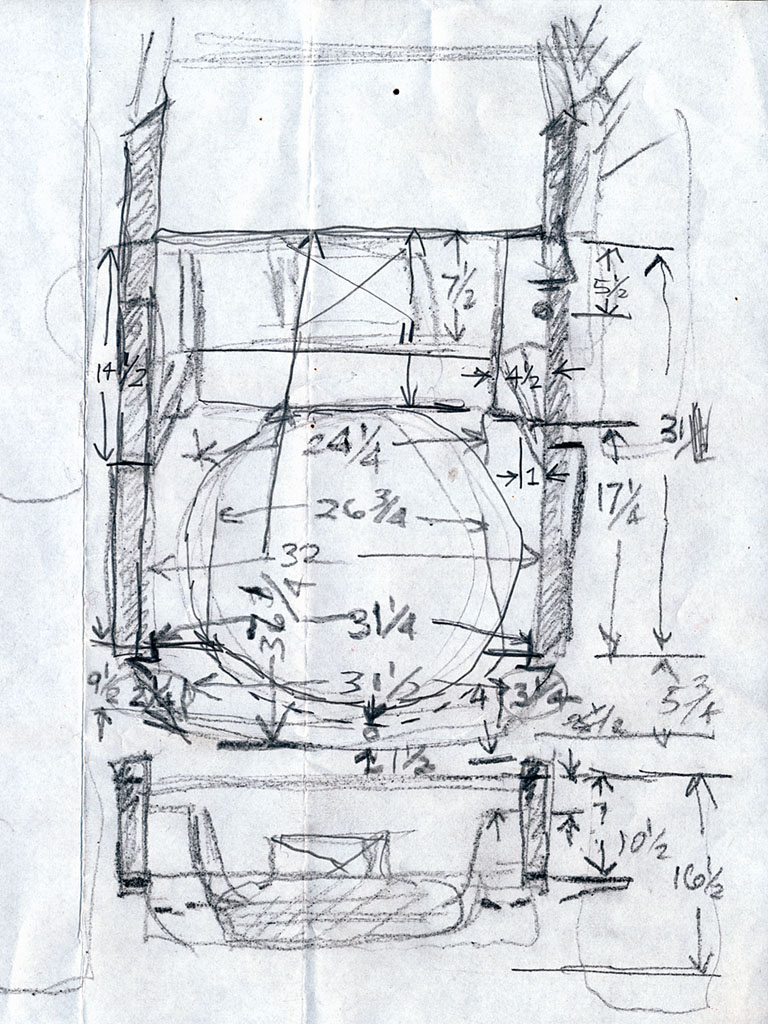 7 1/2
5 1/2
14 1/2
4 1/2
31
24 1/4
1
17 1/4
26 3/4
32
36 1/4
31 1/4
9 1/2
2 1/4
31 1/2
4
3 1/4
5 3/4
1 1/2
?
10 1/2
16 1/2